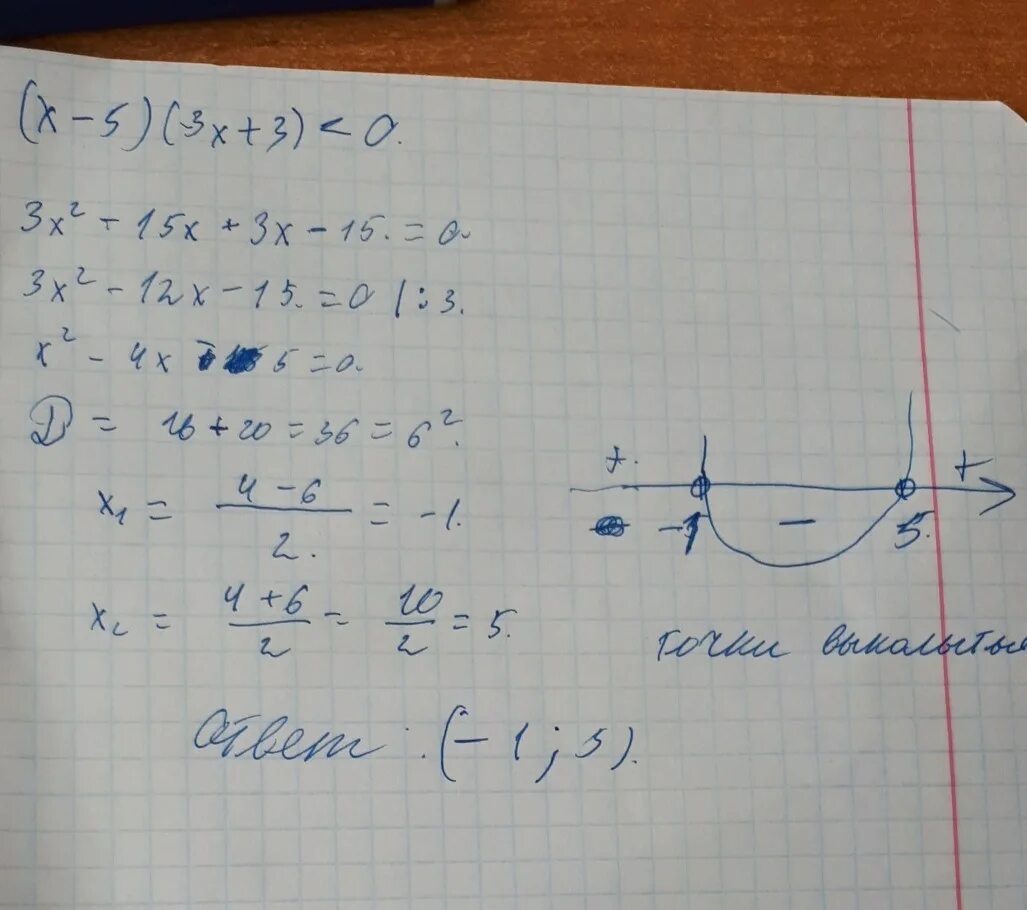 (x-5)(3x+3)<0.
3x² - 15x + 3x - 15. = 0.
3x² - 12x - 15. = 0 | : 3.
x² - 4x - 5 = 0.
D = 16 + 20 = 36 = 6².
x₁ = (4-6)/2. = -1.
x₂ = (4+6)/2 = 10/2 = 5.
+. - +
-1 5.
точки выколытые
Ответ: (-1; 5).